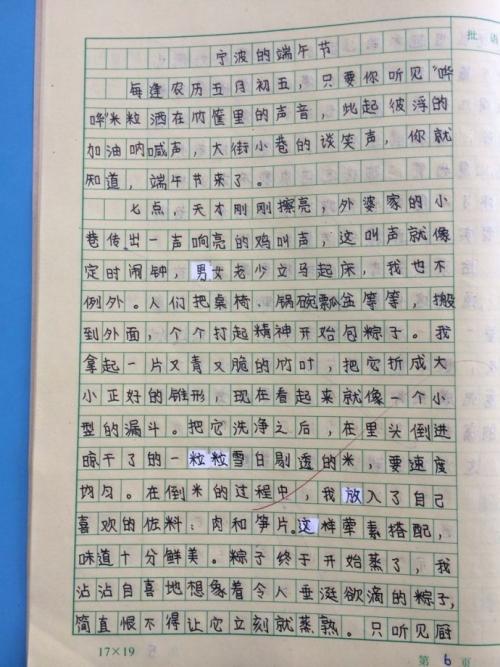 批语
宁波的端午节
每逢农历五月初五，只要你听见“哗
哗”米粒洒在竹筐里的声音，此起彼浮的
加油呐喊声，大街小巷的谈笑声，你就
知道，端午节来了。
七点，天才刚刚擦亮，外婆家的小
巷传出一声响亮的鸡叫声，这叫声就像
定时闹钟，男女老少立马起床，我也不
例外。人们把桌椅、锅碗瓢盆等等，搬
到外面，个个打起精神开始包粽子。我
拿起一片又青又脆的竹叶，把它折成大
小正好的锥形，现在看起来就像一个小
型的漏斗。把它洗净之后，在里头倒进
晾干了的一粒粒雪白剔透的米，要速度
均匀。在倒米的过程中，我放入了自己
喜欢的佐料：肉和笋片。这样荤素搭配，
味道十分鲜美。粽子终于开始蒸了，我
沾沾自喜地想象着令人垂涎欲滴的粽子，
简直恨不得让它立刻就蒸熟。只听见厨
17×19
第 6 页